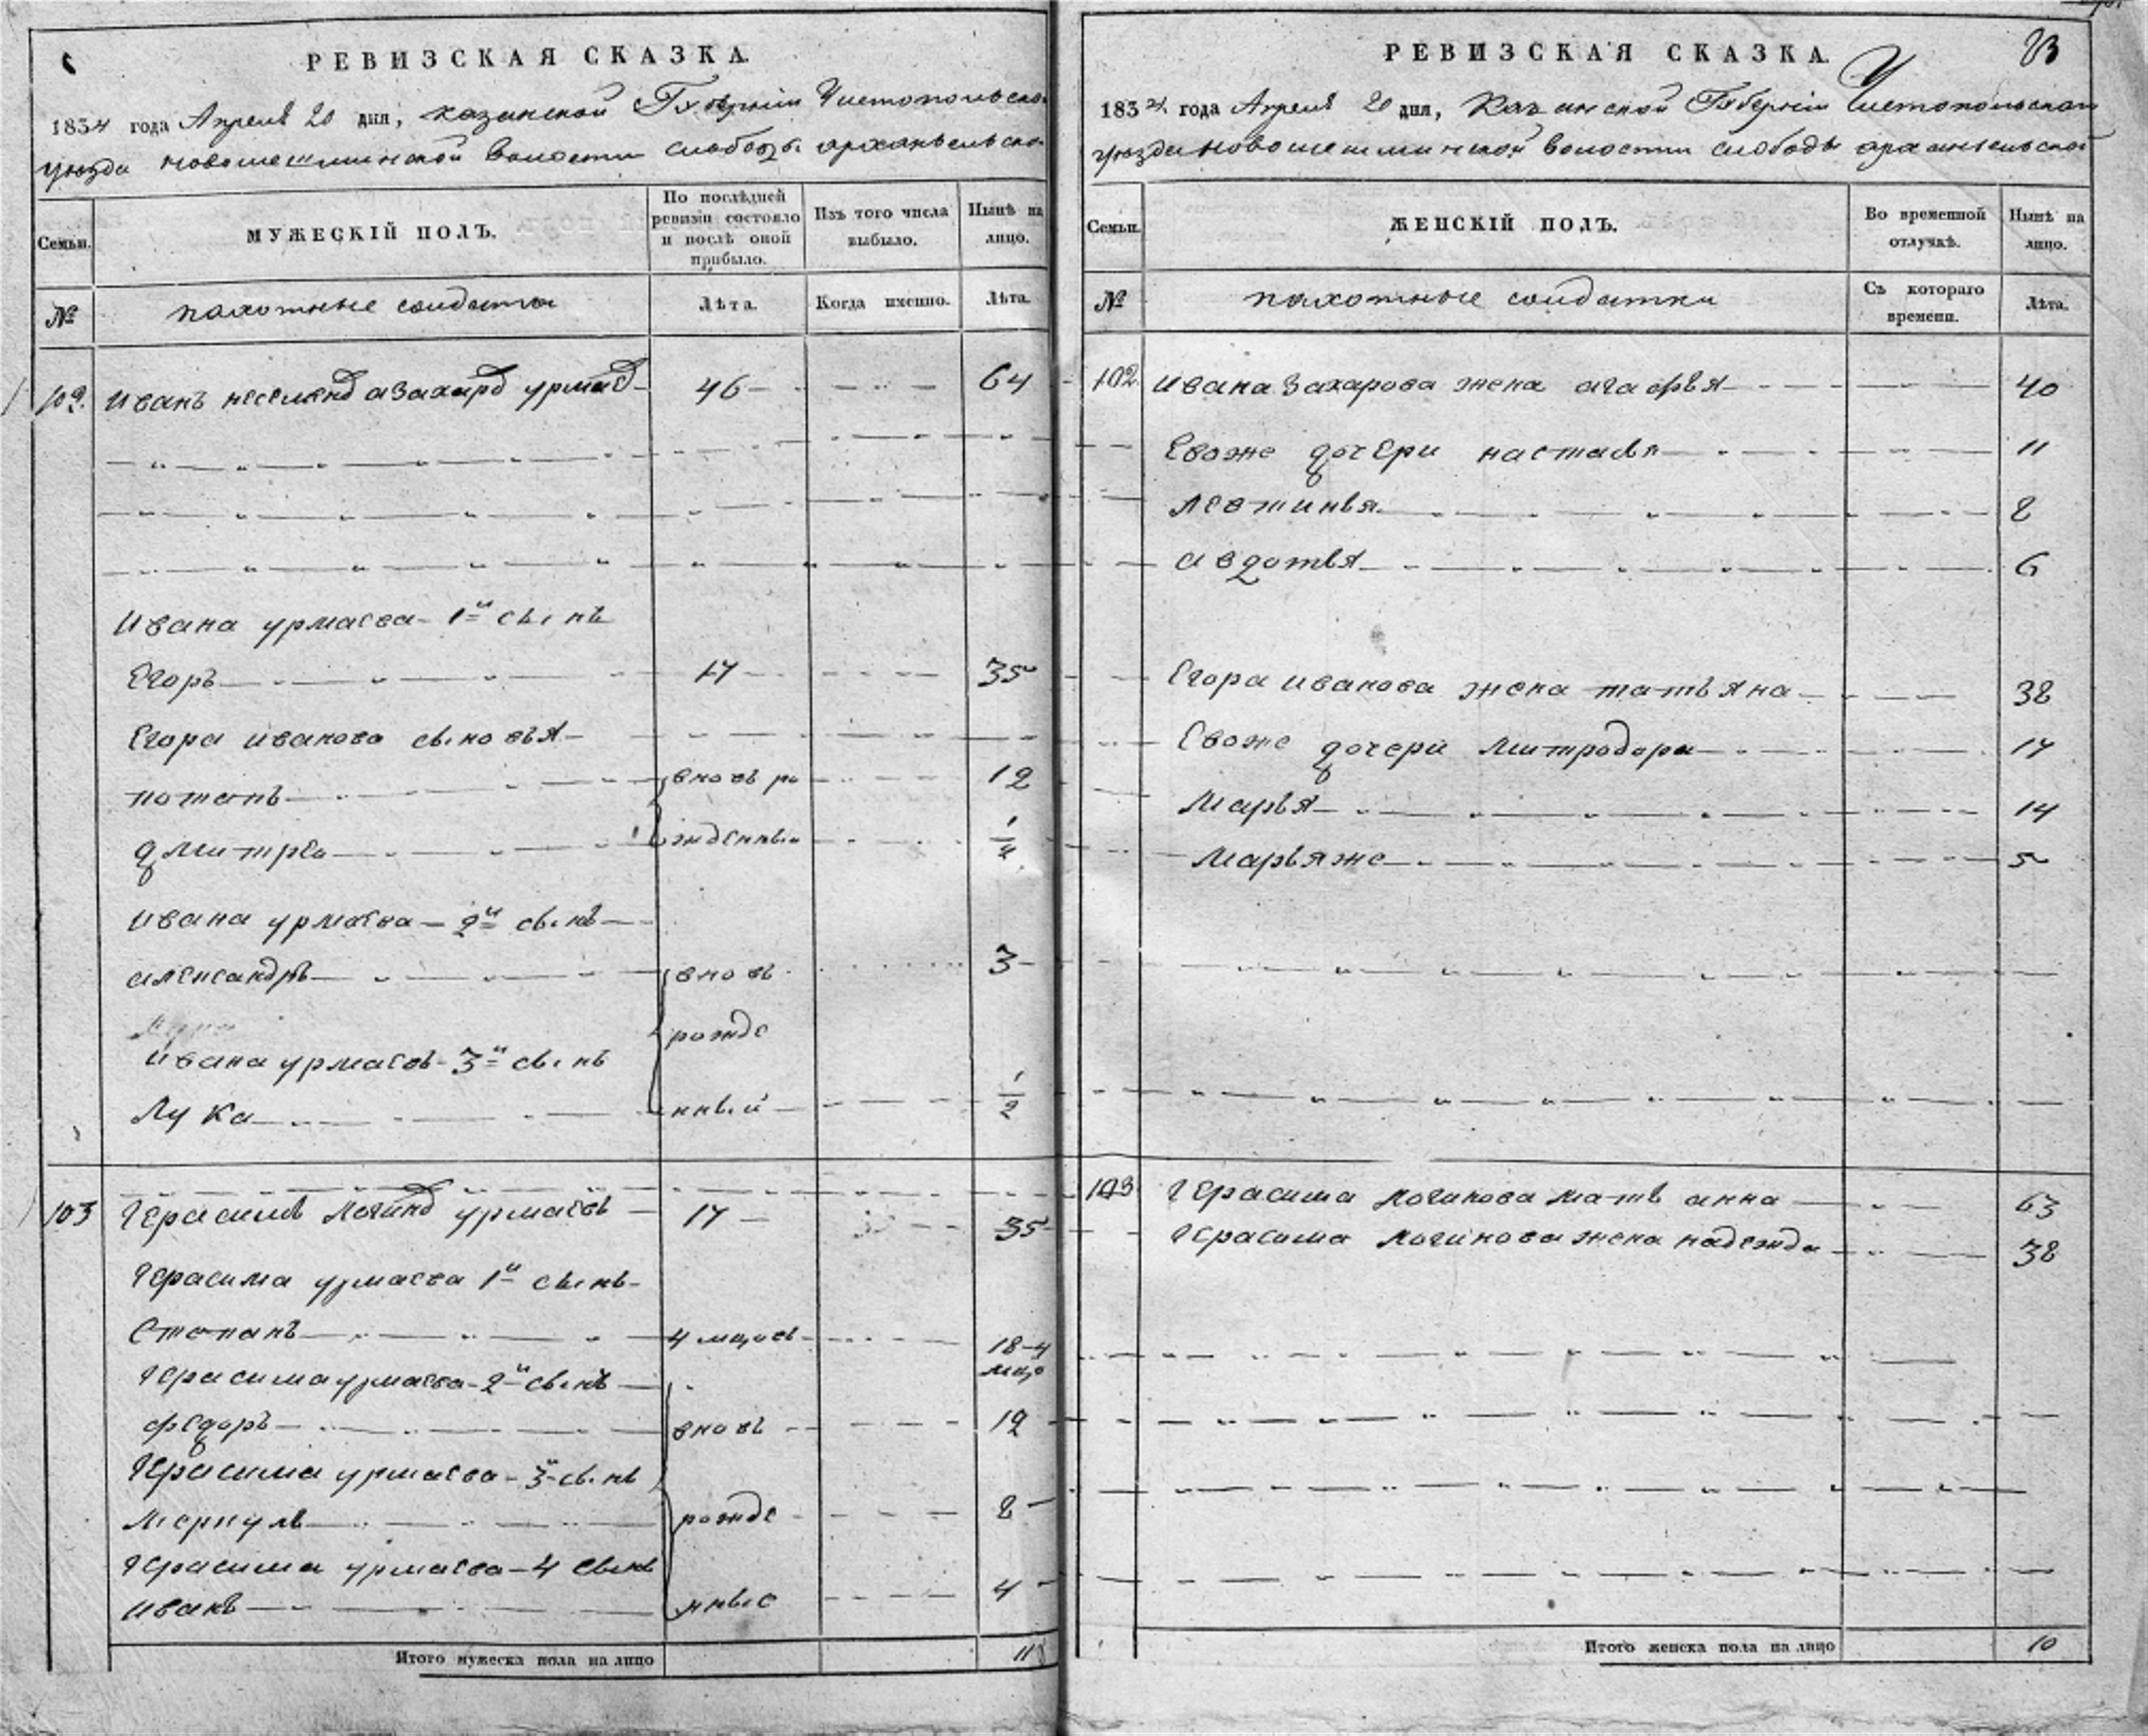 РЕВИЗСКАЯ СКАЗКА.
1834 года Апреля 20 дня, казанской Губерніи Чистопольско
уезда новошешминской волости слободы архангельско
Семьи.
МУЖЕСКІЙ ПОЛЪ.
По послѣдней ревизіи состояло и послѣ оной прибыло.
Изъ того числа выбыло.
Нынѣ на лицо.
№
пахотные солдаты
Лѣта.
Когда именно.
Лѣта.
102. Иванъ захаровъ урмаевъ 46 64
Ивана урмаева 1й сынъ
Егоръ 17 35
Егора иванова сыновья
потапъ вновь ро 12
дмитрей жденныи 1/4
Ивана урмаева 2й сынъ
александръ вновь 3
рожде
Ивана урмаева 3й сынъ
Лука нный 1/2
103 Герасимъ логиновъ урмаевъ 17 35
Герасима урмаева 1й сынъ
Степанъ 4 мцовъ 18-4 мцо
Герасима урмаева 2й сынъ
федоръ вновь 12
Герасима урмаева 3й сынъ
Меркулъ рожде 8
Герасима урмаева 4 сынъ
Иванъ нные 4
Итого мужеска пола на лицо 11
РЕВИЗСКАЯ СКАЗКА.
83
1834 года Апреля 20 дня, Казанской Губерніи Чистопольскои
уезда новошешминской волости слободы архангельской
Семьи.
ЖЕНСКІЙ ПОЛЪ.
Во временной отлучкѣ.
Нынѣ на лицо.
№
пахотные солдатки
Съ котораго времени.
Лѣта.
102. Ивана Захарова жена агафья 40
Евоже дочери настасья 11
Левтинья 8
авдотья 6
Егора иванова жена татьяна 38
Евоже дочери Митродора 17
Марья 14
Марьяже 5
103 Герасима логинова мать анна 63
Герасима логинова жена надежда 38
Итого женска пола на лицо 10